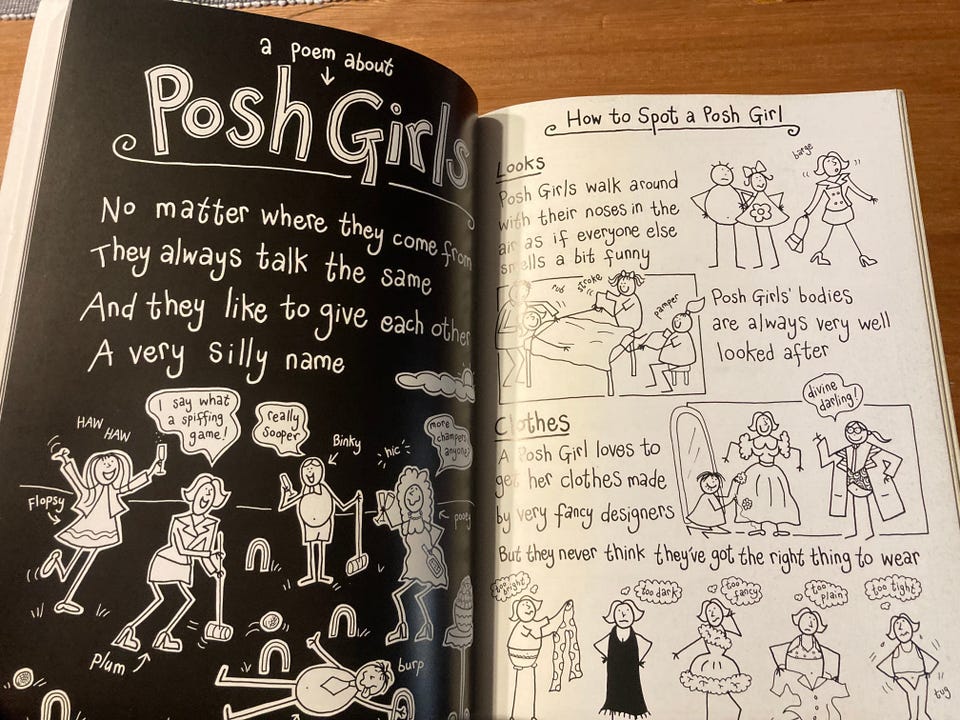 a poem about
Posh Girls
No matter where they come from
They always talk the same
And they like to give each other
A very silly name
HAW HAW
I say what
a spiffing
game!
really
sooper
more
champers
anyone?
hic
Binky
Flopsy
pooey
Plum
burp
How to Spot a Posh Girl
Looks
Posh Girls walk around
with their noses in the
air as if everyone else
smells a bit funny
barge
rub
stroke
pamper
Posh Girls' bodies
are always very well
looked after
Clothes
A Posh Girl loves to
get her clothes made
by very fancy designers
divine
darling!
But they never think they've got the right thing to wear
too bright
too dark
too fancy
too plain
too tight
tug